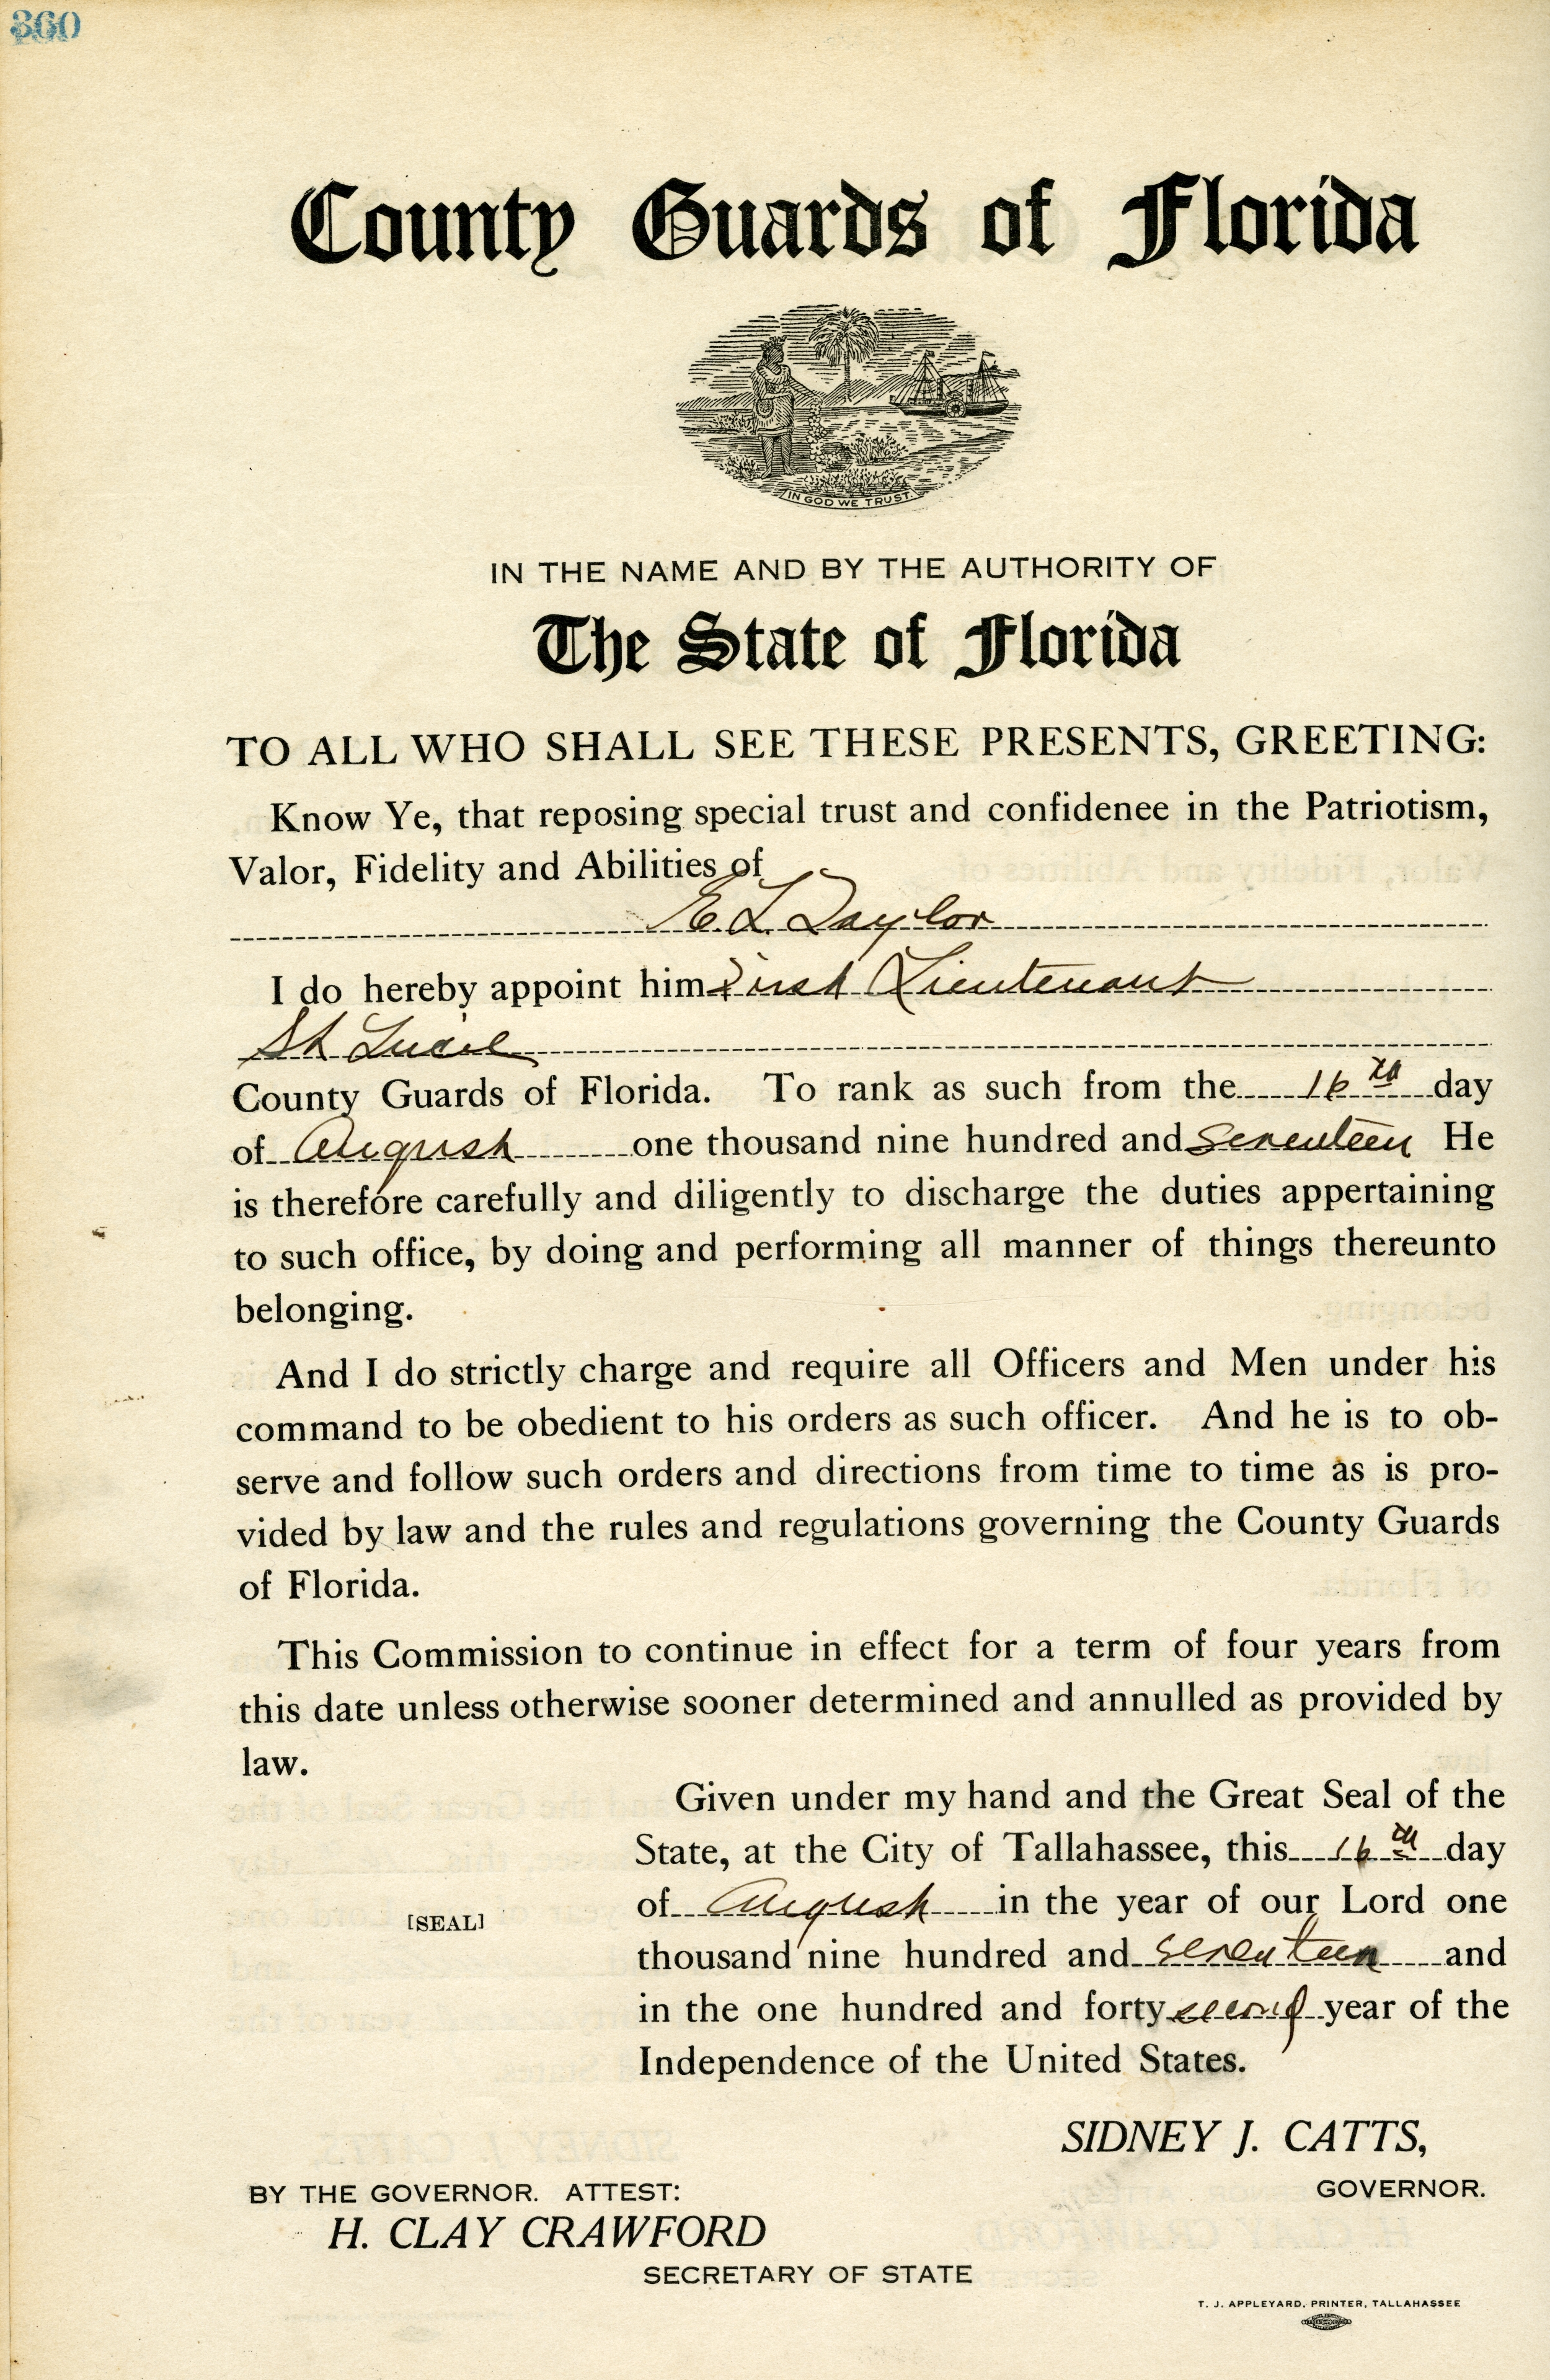 360
County Guards of Florida
IN GOD WE TRUST.
IN THE NAME AND BY THE AUTHORITY OF
The State of Florida
TO ALL WHO SHALL SEE THESE PRESENTS, GREETING:
Know Ye, that reposing special trust and confidenee in the Patriotism,
Valor, Fidelity and Abilities of
E. L. Taylor
I do hereby appoint him First Lieutenant
St Lucie
County Guards of Florida. To rank as such from the 16th day
of August one thousand nine hundred and seventeen He
is therefore carefully and diligently to discharge the duties appertaining
to such office, by doing and performing all manner of things thereunto
belonging.
And I do strictly charge and require all Officers and Men under his
command to be obedient to his orders as such officer. And he is to ob-
serve and follow such orders and directions from time to time as is pro-
vided by law and the rules and regulations governing the County Guards
of Florida.
This Commission to continue in effect for a term of four years from
this date unless otherwise sooner determined and annulled as provided by
law.
Given under my hand and the Great Seal of the
State, at the City of Tallahassee, this 16th day
of August in the year of our Lord one
[SEAL]
thousand nine hundred and seventeen and
in the one hundred and forty second year of the
Independence of the United States.
SIDNEY J. CATTS,
GOVERNOR.
BY THE GOVERNOR. ATTEST:
H. CLAY CRAWFORD
SECRETARY OF STATE
T. J. APPLEYARD, PRINTER, TALLAHASSEE